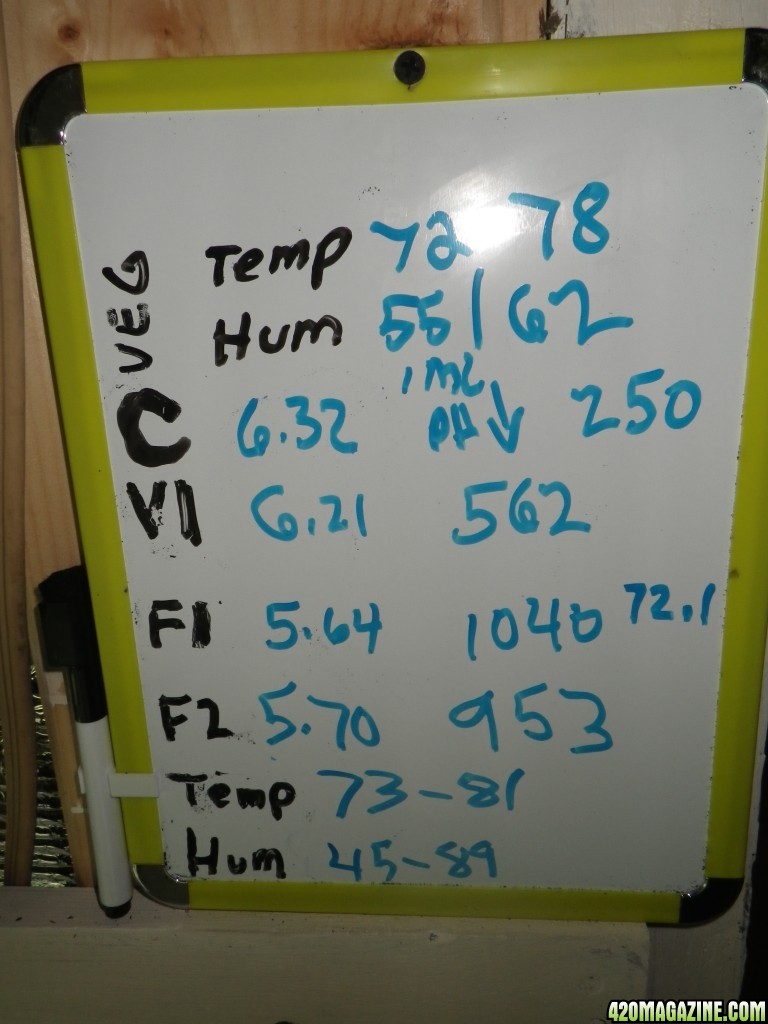 VEG
Temp 72 78
Hum 55/62
1 ML
C 6.32 PH↓ 250
V1 6.21 562
F1 5.64 1040 72.1
F2 5.70 953
Temp 73-81
Hum 45-89
420MAGAZINE.COM